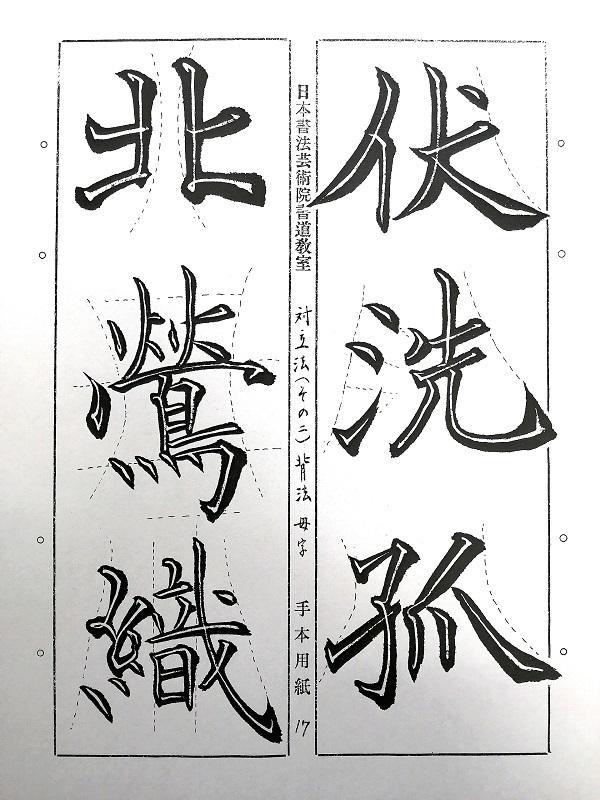 伏洗孤
日本書法芸術院書道教室 対立法(その二)背法 母字 手本用紙 17
北鶯織